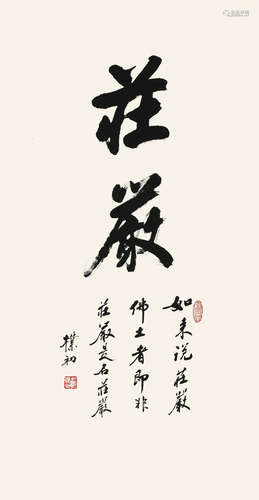 莊嚴
如来说莊嚴
佛土者即非
莊嚴是名莊嚴
樸初